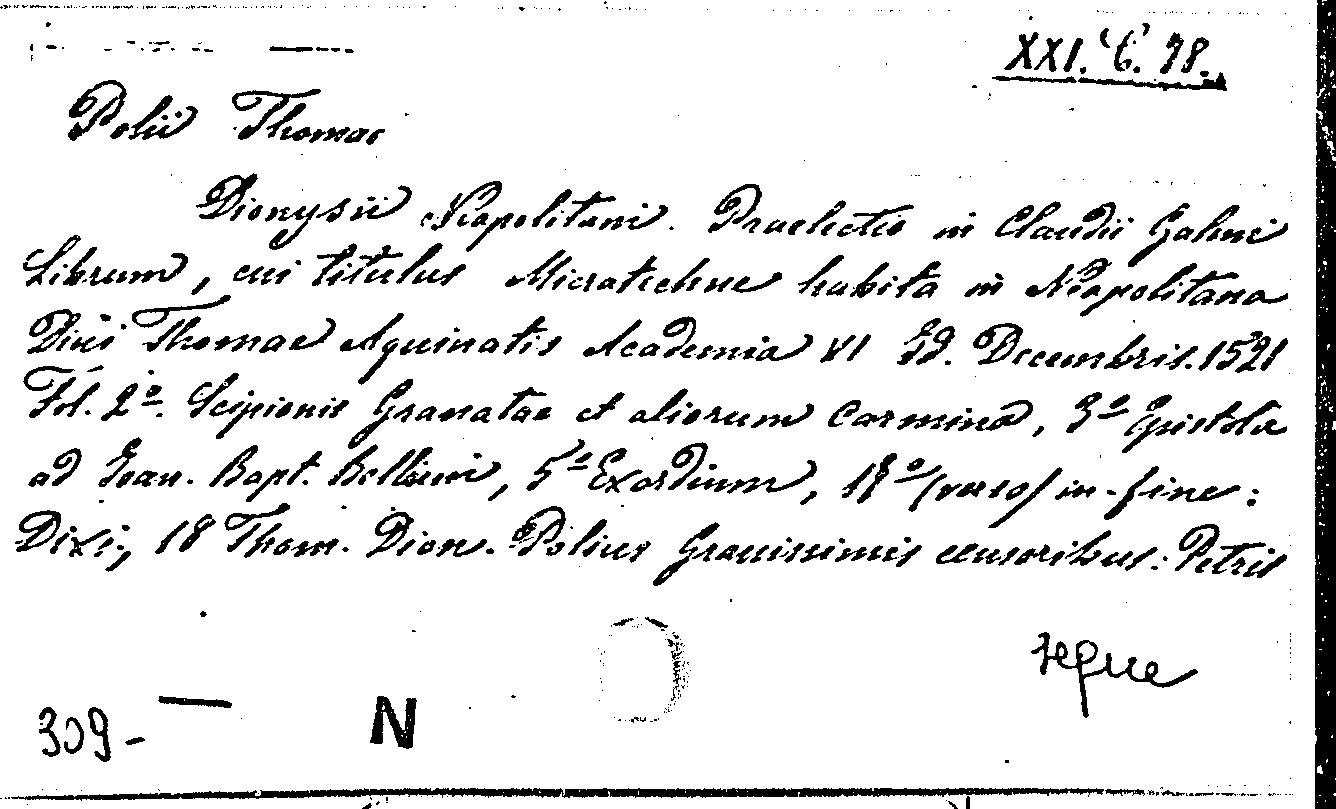 XXI. C. 98.
Polii Thomae
Dionysii Neapolitani. Praelectio in Claudii Galeni
Librum, cui titulus Microtechne habita in Neapolitana
Divi Thomae Aquinatis Academia VI Id. Decembris. 1521
Fol. 2º. Scipionis Granatae et aliorum Carmina, 3º Epistola
ad Joan. Bapt. 5º Exordium, 18º (verso) in-fine:
Dixi, 18 Thom. Dion. Polius Gravissimis censoribus: Petris
segue
309-
N